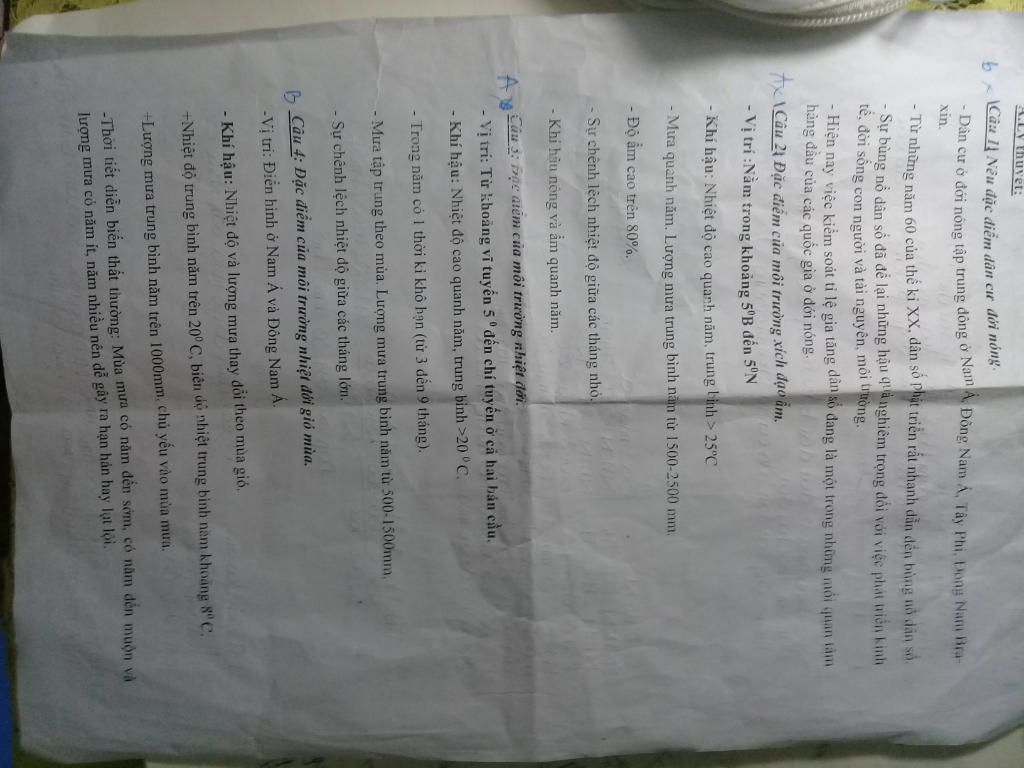 A.Lý thuyết:
b × Câu 1: Nêu đặc điểm dân cư đới nóng.
- Dân cư ở đới nóng tập trung đông ở Nam Á, Đông Nam Á, Tây Phi, Đông Nam Bra-
xin.
- Từ những năm 60 của thế kỉ XX, dân số phát triển rất nhanh dẫn đến bùng nổ dân số
- Sự bùng nổ dân số đã để lại những hậu quả nghiêm trọng đối với việc phát triển kinh
tế, đời sống con người và tài nguyên, môi trường.
- Hiện nay việc kiểm soát tỉ lệ gia tăng dân số đang là một trong những mối quan tâm
hàng đầu của các quốc gia ở đới nóng.
A × Câu 2: Đặc điểm của môi trường xích đạo ẩm.
- Vị trí :Nằm trong khoảng 5⁰B đến 5⁰N
- Khí hậu: Nhiệt độ cao quanh năm, trung bình > 25ºC
- Mưa quanh năm. Lượng mưa trung bình năm từ 1500-2500 mm
- Độ ẩm cao trên 80%.
- Sự chênh lệch nhiệt độ giữa các tháng nhỏ,
- Khí hậu nóng và ẩm quanh năm.
A Câu 3: Đặc điểm của môi trường nhiệt đới.
- Vị trí: Từ khoảng vĩ tuyến 5 ⁰ đến chí tuyến ở cả hai bán cầu.
- Khí hậu: Nhiệt độ cao quanh năm, trung bình >20 ⁰ C.
- Trong năm có 1 thời kì khô hạn (từ 3 đến 9 tháng).
- Mưa tập trung theo mùa. Lượng mưa trung bình năm từ 500-1500mm,
- Sự chênh lệch nhiệt độ giữa các tháng lớn.
B Câu 4: Đặc điểm của môi trường nhiệt đới gió mùa.
-Vị trí: Điển hình ở Nam Á và Đông Nam Á.
- Khí hậu: Nhiệt độ và lượng mưa thay đổi theo mùa gió.
+Nhiệt độ trung bình năm trên 20⁰ C, biên độ nhiệt trung bình năm khoảng 8⁰ C.
+Lượng mưa trung bình năm trên 1000mm, chủ yếu vào mùa mưa.
-Thời tiết diễn biến thất thường: Mùa mưa có năm đến sớm, có năm đến muộn và
lượng mưa có năm ít, năm nhiều nên dễ gây ra hạn hán hay lụt lội.